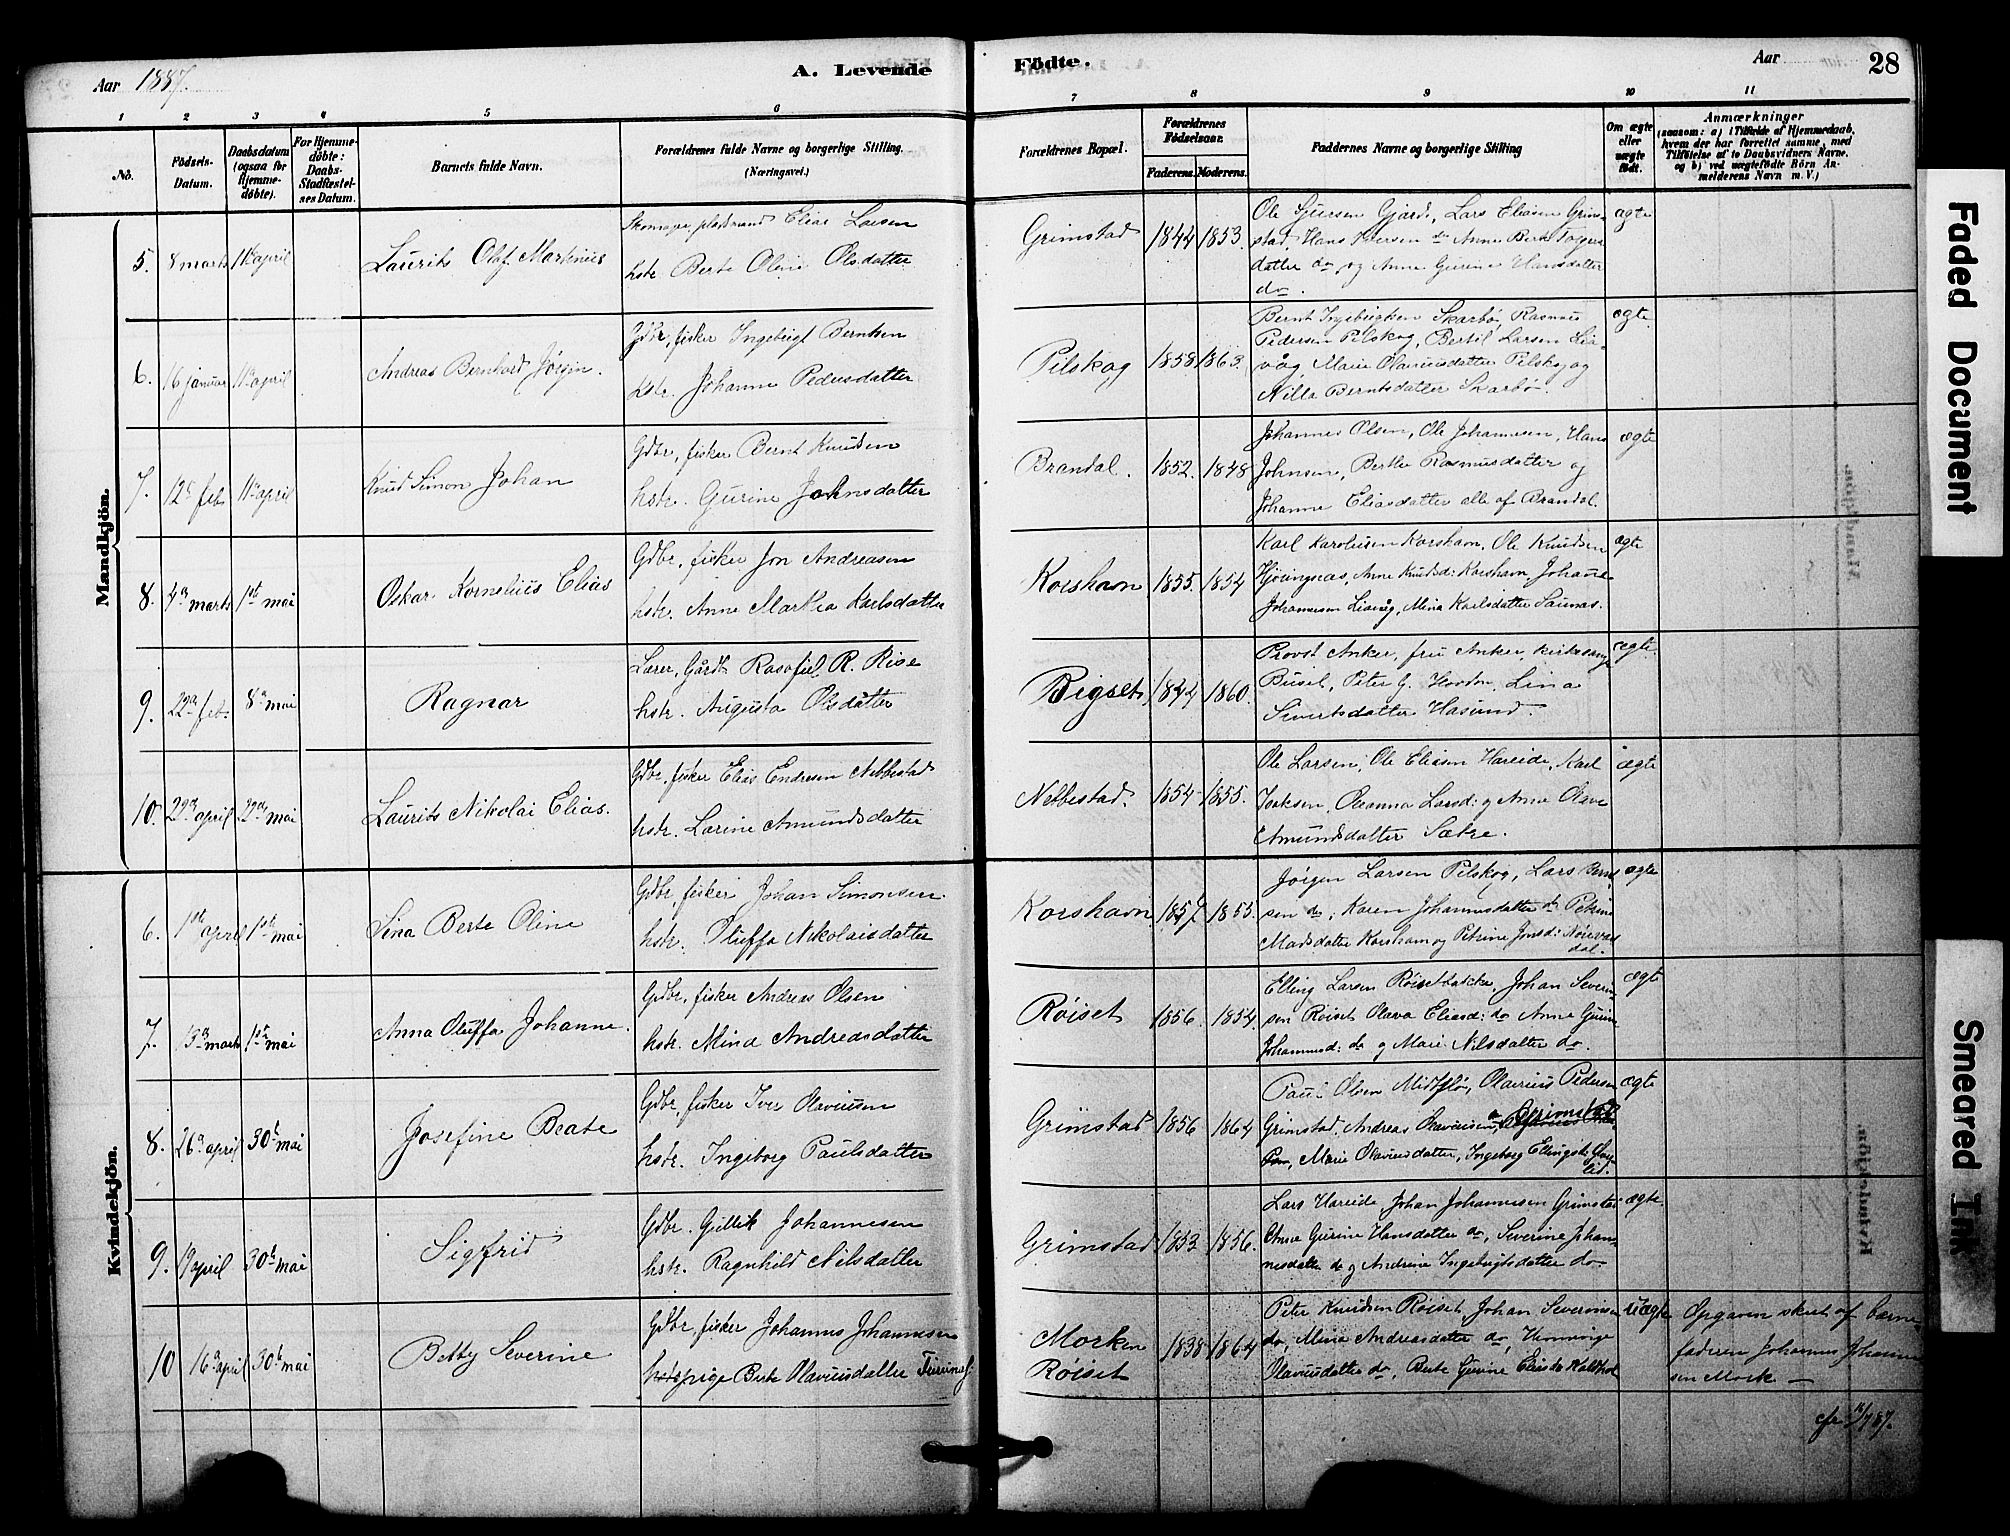 Aar 1887. A. Levende Fødte. Aar 28
1 2 3 4 5 6 7 8 9 10 11
No.
Fødsels-Datum.
Daabsdatum (ogsaa for Hjemmedøbte).
For Hjemmedøbte: Daabs-Stadfæstelses Datum.
Barnets fulde Navn.
Forældrenes fulde Navne og borgerlige Stilling. (Næringsvei.)
Forældrenes Bopæl.
Forældrenes Fødselsaar.
Faderens. Moderens.
Faddernes Navne og borgerlige Stilling
Om ægte eller uægte født.
Anmærkninger
(saasom: a) i Tilfælde af Hjemmedaab, hvem der har forrettet samme, med Tilføielse af to Daabsvidners Navne, og b) ved uægtefødte Børn Anmelderens Navn m. V.)
Mandkjøn.
5. 8 marts 11te april
Laurits Olaf Martinius
Skomager, pladsmand Elias Larsen
hstr. Berte Oline Olsdatter
Grimstad 1844 1853.
Ole Sjursen Gjerde, Lars Eliasen Grim-
stad, Hans Petersen do Anne Berte
datter do og Anne Gurine Hansdatter
do.
ægte
6. 16 januar 11te april
Andreas Bernhard Jørgin.
Gdbr, fisker Ingebrigt Berntsen
hstr. Johanne Pedersdatter
Pilskog 1858 1863.
Bernt Ingebrigtsen Skarbø, Rasmus
Pedersen Pilskog, Bertil Larsen Lia-
våg, Marie Olavusdatter Pilskog og
Nilla Berntsdatter Skarbø.
ægte
7. 12te feb 11te april
Knud Simon Johan
Gdbr, fisker Bernt Knudsen
hstr. Gurine Johnsdatter
Brandal. 1852. 1848
Johannes Olsen, Ole Johannesen, Hans
Johnsen, Berthe Rasmusdatter og
Johanne Eliasdatter alle af Brandal.
ægte
8. 4de marts 1ste mai
Oskar Kornelius Elias
Gdbr, fisker Jon Andreasen
hstr. Anne Martha Karlsdatter
Korshavn 1855. 1854
Karl Karolusen Korshavn, Ole Knudsen
Hjørungnæs, Anne Knudsd: Korshavn, Johane
Johannesen Liavåg, Mina Karlsdatter
ægte
9. 22de feb. 8de mai
Ragnar
Lærer, Gårdb. R. Rise
hstr. Augusta Olsdatter
Bigset 1844 1860.
Provst Anker, fru Anker, kirkesang.
Buset, Peter G. Lina
Sivertsdatter Hasund.
ægte.
10. 22de april 22de mai
Laurits Nikolai Elias.
Gdbr, fisker Elias Endresen Nebbestad
hstr. Larine Amundsdatter
Nebbestad. 1854 1855.
Ole Larsen, Ole Eliasen Hareide, Karl
Isaksen, Oleanna Larsd: og Anne Olave
Amundsdatter Sætre.
ægte
Kvindekjøn.
6. 1ste april 1ste mai
Sina Berte Oline
Gdbr, fisker Johan Simonsen
hstr. Oluffa Nikolaisdatter
Korshavn 1857 1855.
Jørgen Larsen Pilskog, Lars Bernt-
sen do, Karen Johannesdatter do Petrine
Madsdatter Korshavn og Petrine Jonsd:
dal.
ægte
7. 13de marts 1ste mai
Anna Oluffa Johanne.
Gdbr, fisker Andreas Olsen
hstr. Mina Andreasdatter
Røiset 1856. 1854.
Elling Larsen Røisetbakke, Johan Severin-
sen Røiset Olava Eliasd: do Anne Gurine
Johannesd: do og Marie Nilsdatter do.
ægte
8. 26de april 30te mai
Josefine Beate
Gdbr, fisker Iver Olavusen
hstr. Ingeborg Paulsdatter
Grimstad 1856 1864
Paul Olsen Midtflø, Olavius Pedersen
Grimstad, Andreas Olavusen, Grimstad
Marie Olavusdatter, Ingeborg Ellingsd:
ægte
9. 19 april 30te mai
Sigfrid
Gdbr. Gullik Johannesen
hstr. Ragnhild Nilsdatter
Grimstad 1853 1856.
Lars Hareide Johan Johannesen Grimstad
Anne Gurine Hansdatter do, Severine Johan-
nesdatter do og Andrine Ingebrigtsdatter do
ægte.
10 16de april 30te mai
Betty Severine
Gdbr, fisker Johannes Johannesen
pige Berte Olaviusdatter
Mork en
Røiset
1838 1864
Peter Knudsen Røiset, Johan Severinsen
do, Mina Andreasdatter do,
Olaviusdatter do, Berte Gurine Eliasd:
uægte
Opgaven skreet af barne-
faderen Johannes Johannes-
sen Mork —
cfr 18/7 87.
Faded Document
Smeared Ink